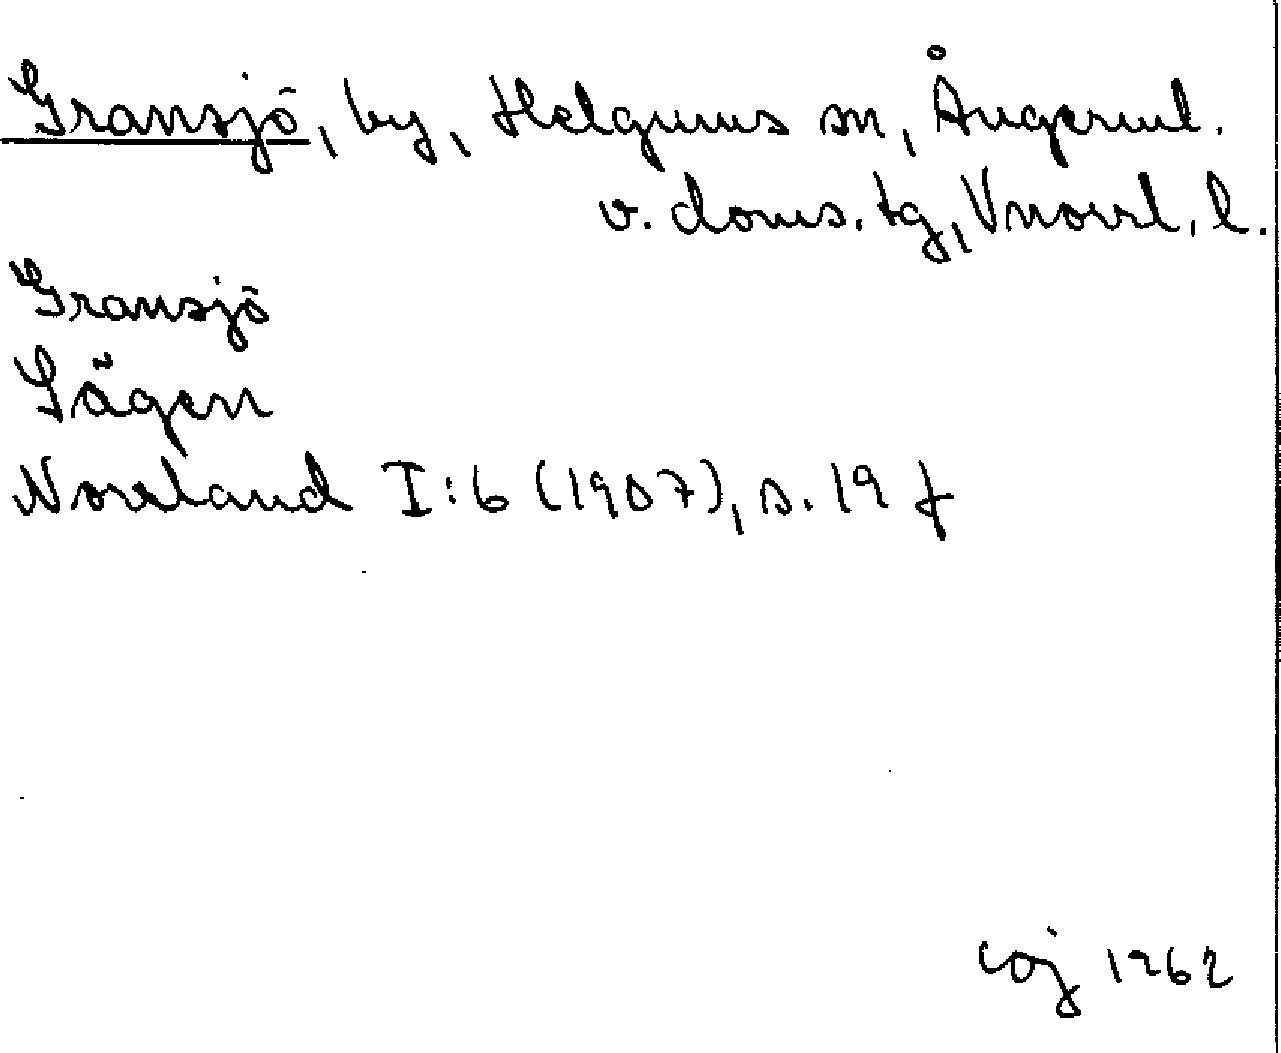 Gransjö, by, Helgums sn, Ångerml.
v. doms. tg, Vnorrl. l.
Gransjö
Sägen
Norrland I:6 (1907), s. 19 f
1962